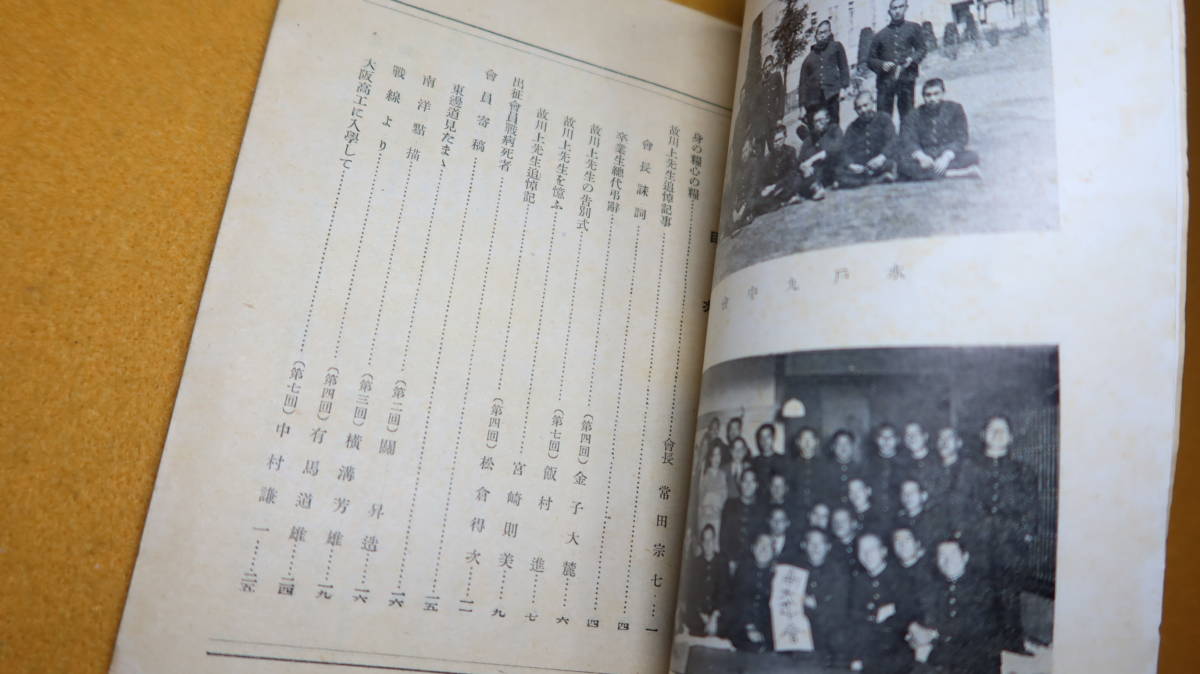 目次
身の糧心の糧……會長 常田宗七…一
故川上先生追悼記事
會長誄詞……四
卒業生總代弔辭……四
故川上先生の告別式……(第四回)金子大麓…六
故川上先生を憶ふ……(第七回)飯村進…七
故川上先生追悼記……宮崎則美…九
出征會員戰病死者……(第四回)松倉得次…一一
會員寄稿……一五
東邊道見たまゝ……(第二回)關昇造…一六
南洋點描……(第三回)横溝芳雄…一九
戰線より……(第四回)有馬道雄…二四
大阪高工に入學して……(第七回)中村謙一…二五